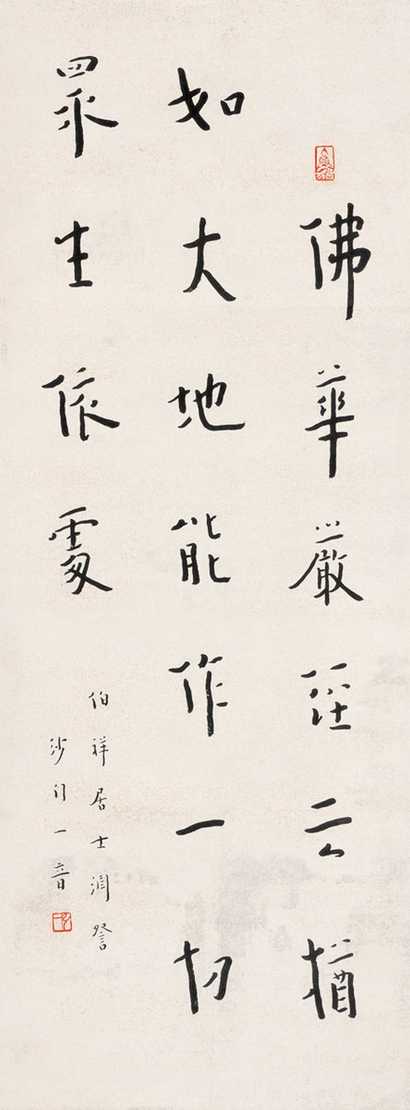 佛華嚴經云猶
如大地能作一切
眾生依處
伯祥居士詧
沙門一音